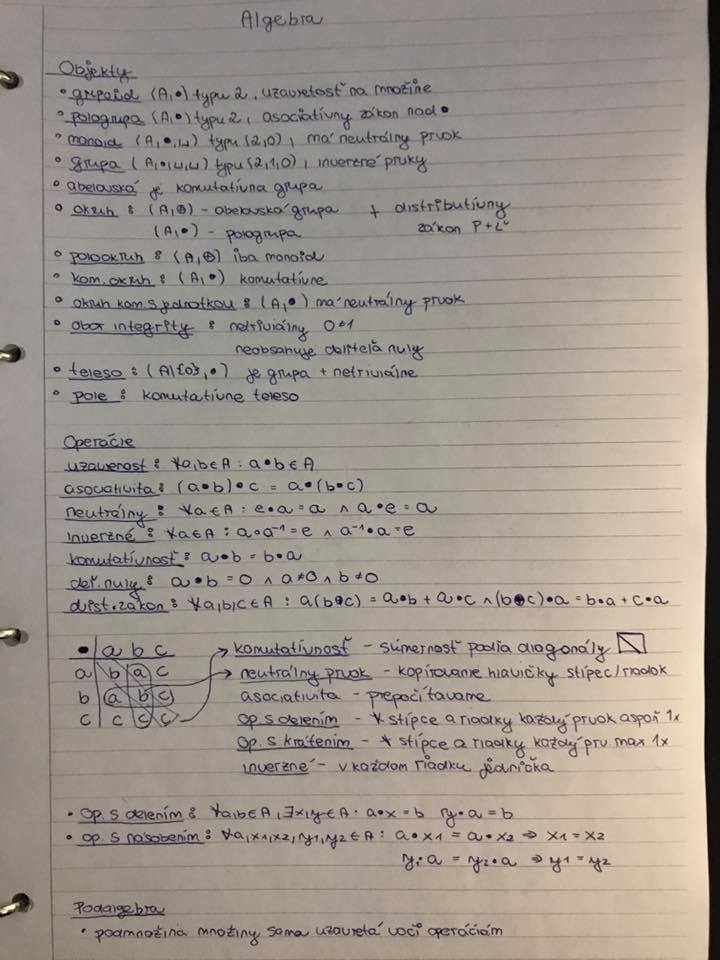 Algebra
Objekty
• grupoid (A,•) typu 2, uzavretosť na množine
• pologrupa (A,•) typu 2, asociatívny zákon nad •
• monoid (A,•,u) typu (2,0), má neutrálny prvok
• grupa (A,•,u,u) typu (2,1,0), inverzné prvky
• abelovská je komutatívna grupa
• okruh : (A,⊕) - abelovská grupa + distributívny
(A,•) - pologrupa zákon P+Ľ
• polookruh : (A,⊕) iba monoid
• kom. okruh : (A,•) komutatívne
• okruh kom. s jednotkou : (A,•) má neutrálny prvok
• obor integrity : netriviálny 0≠1
neobsahuje deliteľa nuly
• teleso : (A\{0},•) je grupa + netriviálne
• pole : komutatívne teleso
Operácie
uzavrenosť : ∀a,b∈A : a•b∈A
asociativita : (a•b)•c = a•(b•c)
neutrálny : ∀a∈A : e•a=a ∧ a•e=a
inverzné : ∀a∈A : a•a⁻¹=e ∧ a⁻¹•a=e
komutatívnosť : a•b = b•a
del. nuly : a•b=0 ∧ a≠0 ∧ b≠0
dist. zákon : ∀a,b,c∈A : a(b⊕c) = a•b + a•c ∧ (b⊕c)•a = b•a + c•a
• a b c komutatívnosť - súmernosť podľa diagonály
a b a c neutrálny prvok - kopírovanie hlavičky stĺpec/riadok
b a b c asociativita - prepočítavame
c c c c op. s delením - * stĺpce a riadky každý prvok aspoň 1x
op. s krátením - * stĺpce a riadky každý prv. max 1x
inverzné - v každom riadku jednička
• op. s delením : ∀a,b∈A, ∃x,y∈A : a•x=b y•a=b
• op. s násobením : ∀a,x1,x2,y1,y2∈A : a•x1 = a•x2 ⇒ x1=x2
y1•a = y2•a ⇒ y1=y2
Podalgebra
• podmnožina množiny sama uzavretá voči operáciám